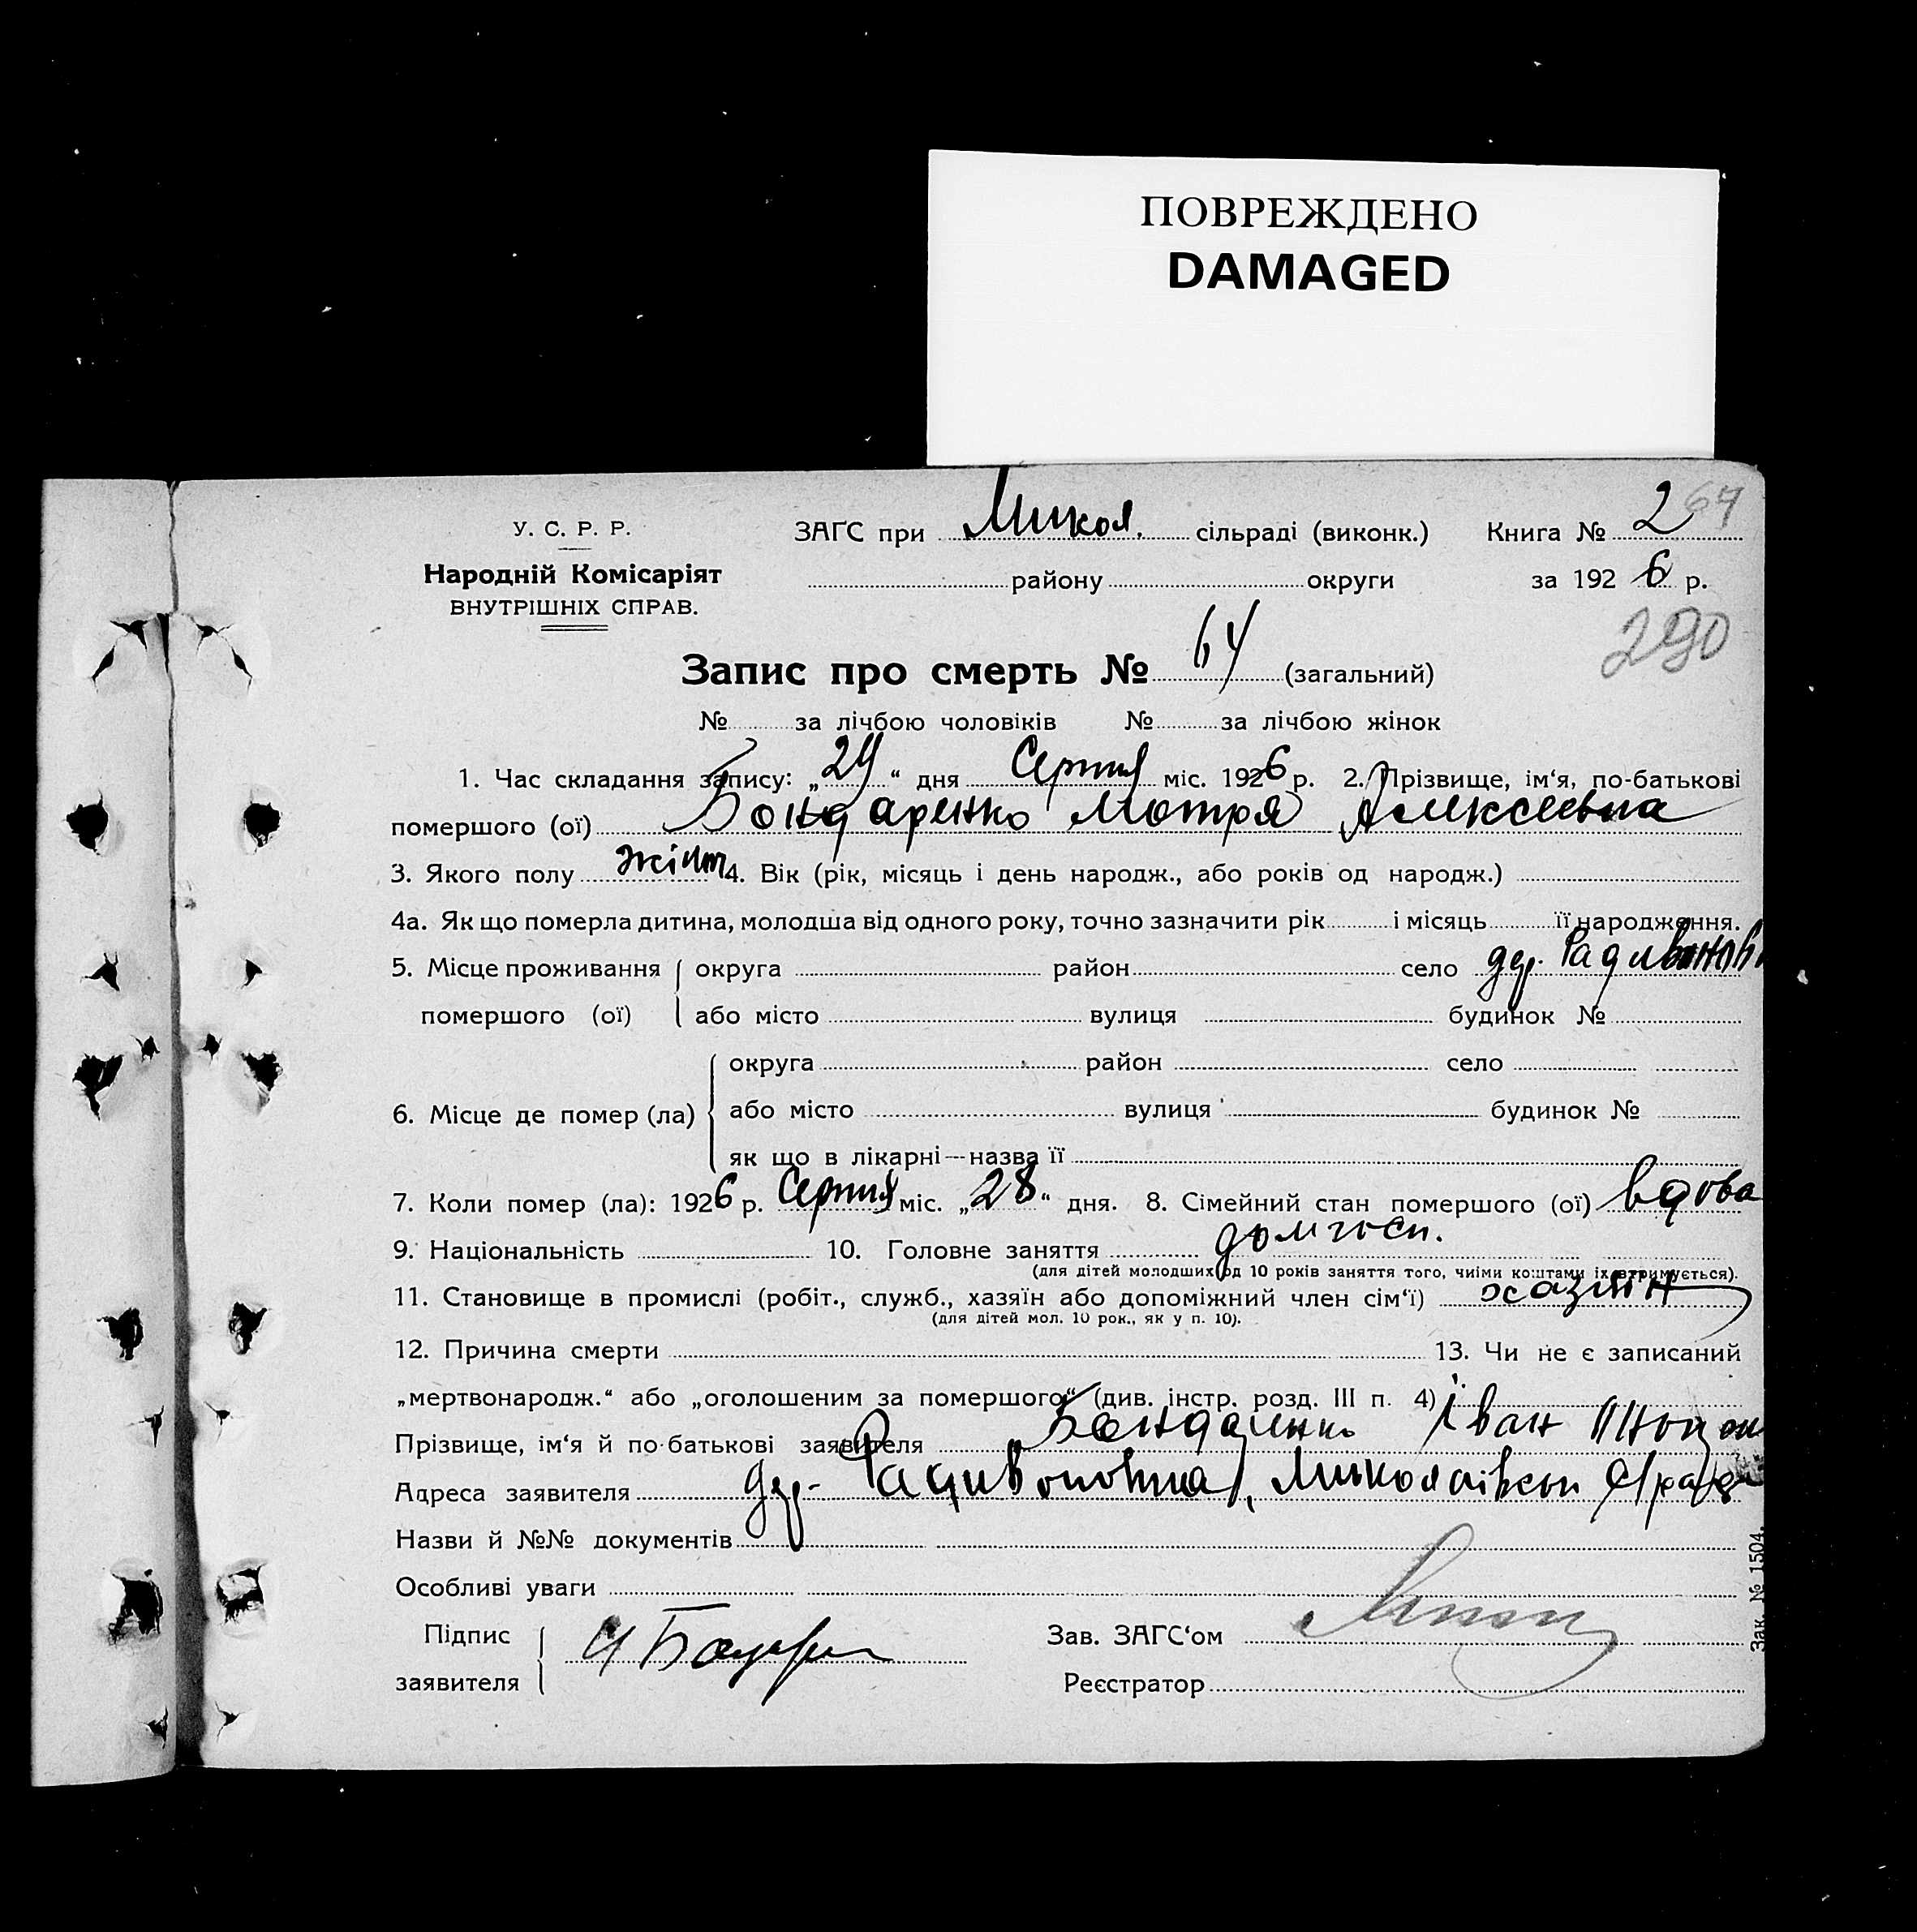 ПОВРЕЖДЕНО
DAMAGED
У. С. Р. Р.
Народній Комісаріят
ВНУТРІШНІХ СПРАВ.
ЗАГС при Микол. сільраді (виконк.) Книга № 2 64
району округи за 1926 р.
290
Запис про смерть № 64 (загальний)
№ за лічбою чоловіків № за лічбою жінок
1. Час складання запису: „29“ дня Серпня міс. 1926 р. 2. Прізвище, ім‘я, по-батькові
помершого (ої) Бондаренко Мотря Алексеевна
3. Якого полу жіноч 4. Вік (рік, місяць і день народж., або років од народж.)
4а. Як що померла дитина, молодша від одного року, точно зазначити рік і місяць її народження.
5. Місце проживання помершого (ої) округа район село дер.
або місто вулиця будинок №
6. Місце де помер (ла) округа район село
або місто вулиця будинок №
як що в лікарні—назва її
7. Коли помер (ла): 1926 р. Серпня міс. „28“ дня. 8. Сімейний стан помершого (ої) вдова
9. Національність 10. Головне заняття дом госп.
(для дітей молодших од 10 років заняття того, чиїми коштами їх втримується).
11. Становище в промислі (робіт., служб., хазяїн або допоміжний член сім‘ї) хазяін
(для дітей мол. 10 рок., як у п. 10).
12. Причина смерти 13. Чи не є записаний
„мертвонародж.“ або „оголошеним за помершого“ (див. інстр. розд. III п. 4)
Прізвище, ім‘я й по-батькові заявителя Бондаренко Іван
Адреса заявителя дер. Радивоновка,
Назви й №№ документів
Особливі уваги
Підпис заявителя
Зав. ЗАГС‘ом
Реєстратор
Зак. № 1504.